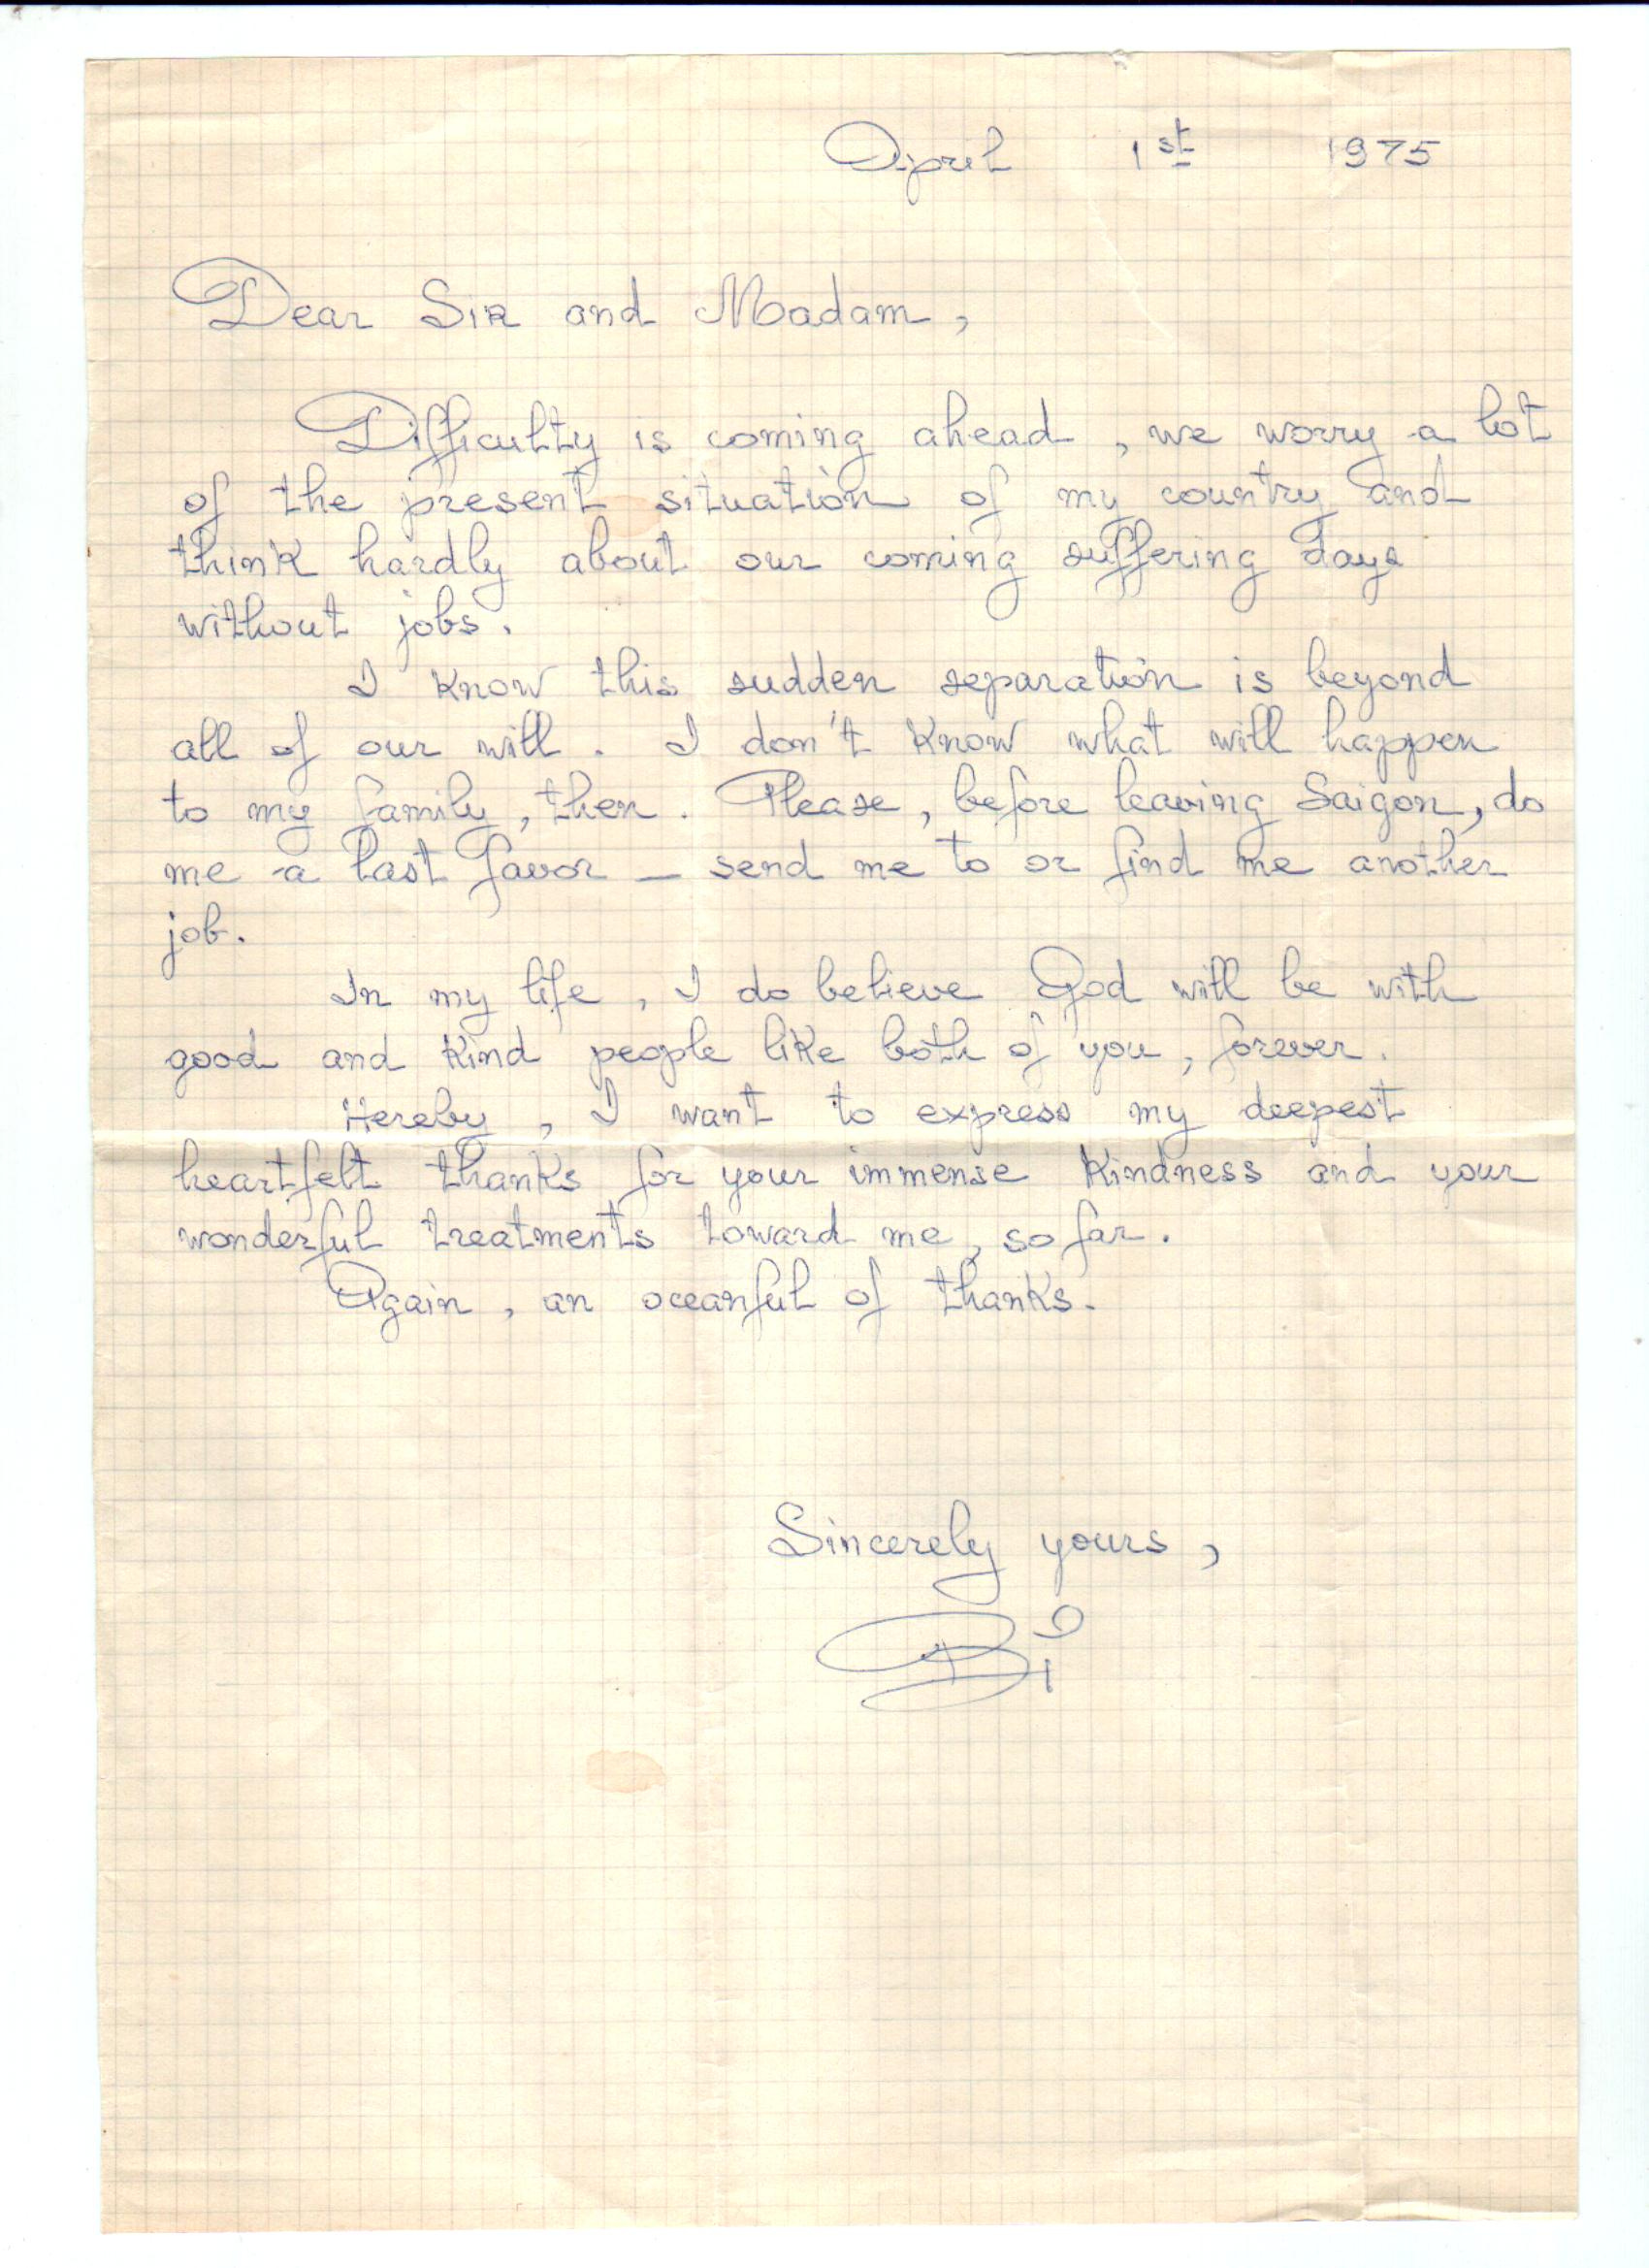 April 1st 1975
Dear Sir and Madam,
Difficulty is coming ahead, we worry a lot
of the present situation of my country and
think hardly about our coming suffering days
without jobs.
I know this sudden separation is beyond
all of our will. I don't know what will happen
to my family, then. Please, before leaving Saigon, do
me a last favor - send me to or find me another
job.
In my life, I do believe God will be with
good and kind people like both of you, forever.
Hereby, I want to express my deepest
heartfelt thanks for your immense kindness and your
wonderful treatments toward me, so far.
Again, an oceanful of thanks.
Sincerely yours,
Bỉ